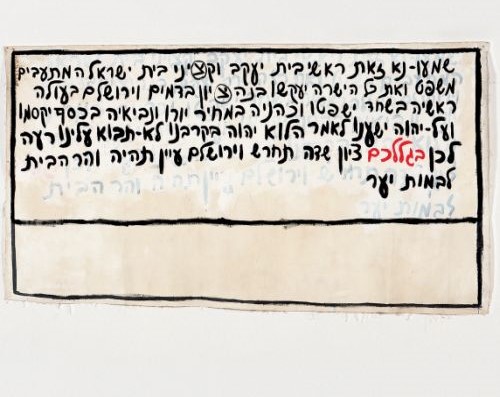 שמעו-נא זאת ראשי בית יעקב וקציני בית ישראל המתעבים
משפט ואת כל הישרה יעקשו בנה ציון בדמים וירושלים בעולה
ראשיה בשחד ישפטו וכהניה במחיר יורו ונביאיה בכסף יקסמו
ועל-יהוה ישענו לאמר הלוא יהוה בקרבנו לא-תבוא עלינו רעה
לכן בגללכם ציון שדה תחרש וירושלם עיין תהיה והר הבית
לבמות יער